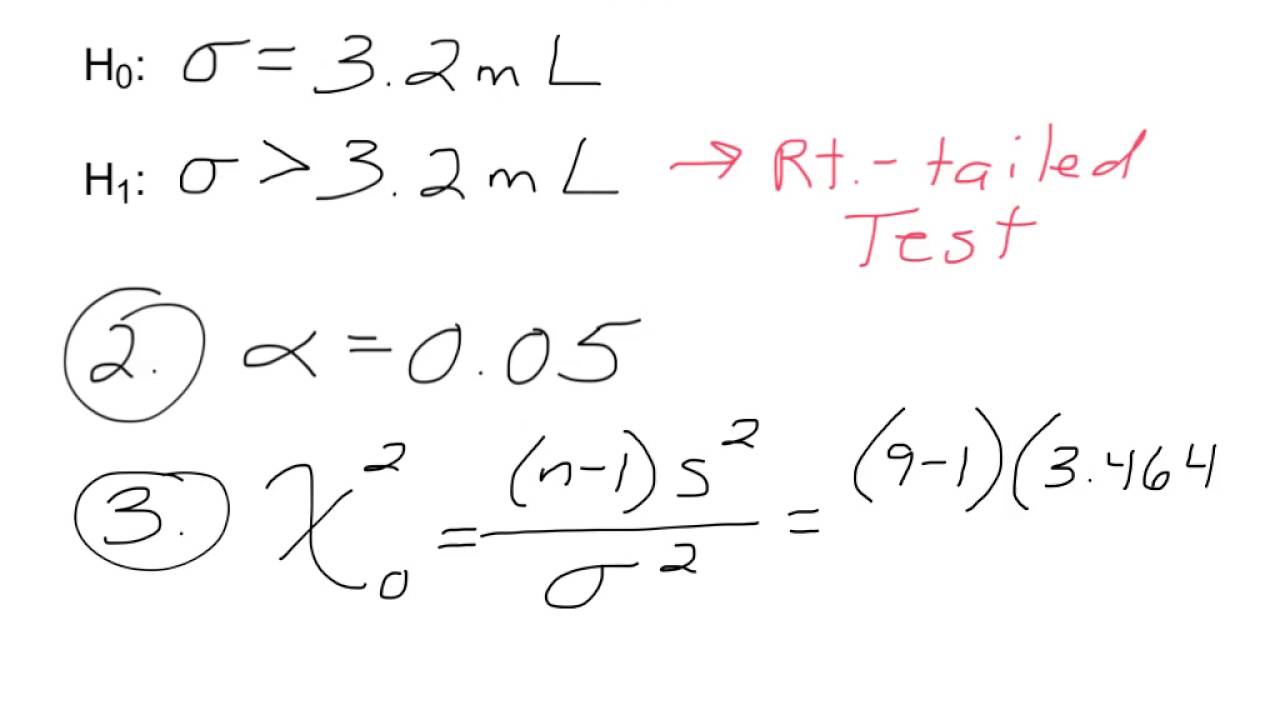 H₀: σ = 3.2 mL
H₁: σ > 3.2 mL → Rt.-tailed
Test
2. α = 0.05
3. χ²₀ = (n-1)s² / σ² = (9-1)(3.464